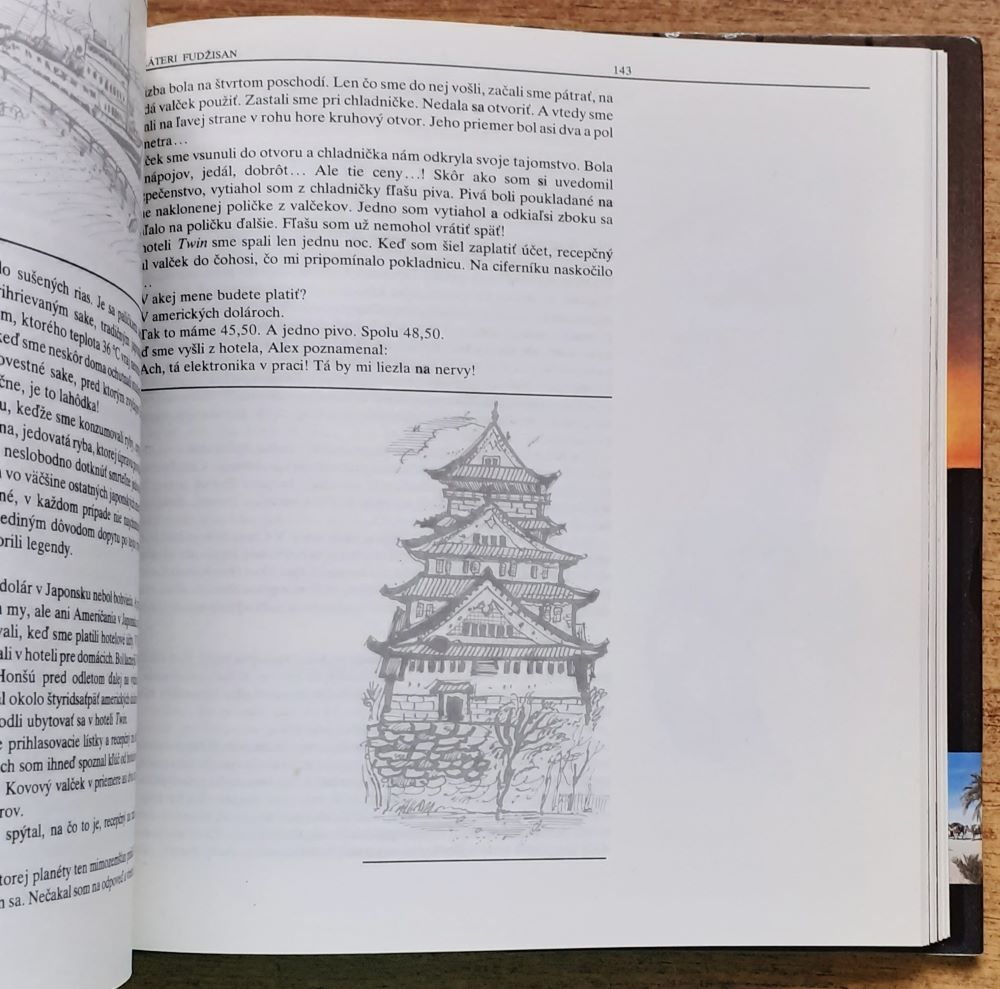 do sušených rias. Je sa
rihrievaným sake,
m, ktorého teplota 36 °C
keď sme neskôr doma
ovestné sake, pred ktorým
čne, je to lahôdka!
u, keďže sme konzumovali ryby,
na, jedovatá ryba, ktorej
neslobodno dotknúť smrteľne
vo väčšine ostatných japonských
né, v každom prípade nie
ediným dôvodom dopytu po
orili legendy.
dolár v Japonsku nebol
my, ale ani Američania v
vali, keď sme platili hotelové
ali v hoteli pre domácich.
Honšú pred odletom ďalej na
l okolo štyridsaťpäť amerických
odli ubytovať sa v hoteli Twin.
prihlasovacie lístky a recepčný
ch som ihneď spoznal kľúč od
Kovový valček v priemere asi
rov.
spýtal, na čo to je, recepčný
torej planéty ten mimozemšťan
m sa. Nečakal som na odpoveď
ÁTERI FUDŽISAN 143
izba bola na štvrtom poschodí. Len čo sme do nej vošli, začali sme pátrať, na
dá valček použiť. Zastali sme pri chladničke. Nedala sa otvoriť. A vtedy sme
ali na ľavej strane v rohu hore kruhový otvor. Jeho priemer bol asi dva a pol
metra...
ček sme vsunuli do otvoru a chladnička nám odkryla svoje tajomstvo. Bola
nápojov, jedál, dobrôt... Ale tie ceny...! Skôr ako som si uvedomil
pečenstvo, vytiahol som z chladničky fľašu piva. Pivá boli poukladané na
e naklonenej poličke z valčekov. Jedno som vytiahol a odkiaľsi zboku sa
ľalo na poličku ďalšie. Fľašu som už nemohol vrátiť späť!
hoteli Twin sme spali len jednu noc. Keď som šiel zaplatiť účet, recepčný
l valček do čohosi, čo mi pripomínalo pokladnicu. Na ciferníku naskočilo
..
V akej mene budete platiť?
V amerických dolároch.
Tak to máme 45,50. A jedno pivo. Spolu 48,50.
ď sme vyšli z hotela, Alex poznamenal:
Ach, tá elektronika v praci! Tá by mi liezla na nervy!